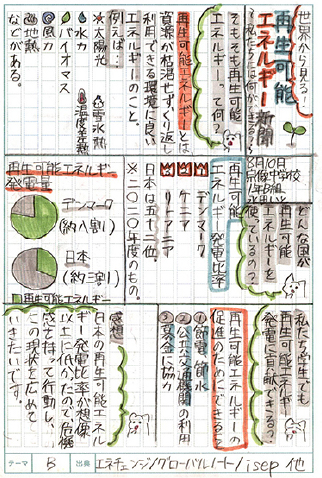 世界から見る！
再生可能
エネルギー新聞
〜私たちには何ができる？〜
そもそも再生可能
エネルギーって何？
再生可能エネルギーとは
資源が枯渇せずくり返し
利用できる環境に良い
エネルギーのこと。
例えば…
太陽光
雪氷熱
水力
温度差熱
バイオマス
風力
地熱
などがある。
8月10日
中学校
1年B組
どんな国が
再生可能
エネルギーを
使っているの？
再生可能
エネルギー発電比率
デンマーク
ケニア
リトアニア
日本は五十二位。
※二〇二〇年度のもの。
再生可能エネルギー
発電量
デンマーク
(約八割)
日本
(約三割)
再生可能エネルギー
私たち学生でも
再生可能エネルギー
発電に貢献できる？
再生可能エネルギーの
促進のためにできる？
①節電・節水
②公共交通機関の利用
③募金に協力
感想
日本の再生可能エネル
ギー発電比率が想像
以上に低かったので危機
感をもって行動し、
この現状を広めて
いきたいです。
テーマ B 出典 エネチェンジ/グローバルノート/isep 他